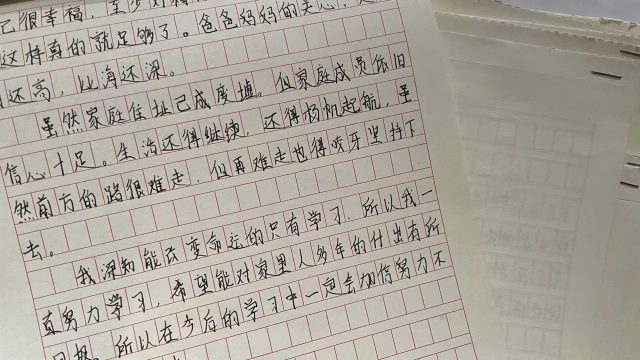 己很幸福，至少对
这样真的就足够了。爸爸妈妈的关心，
还高，比海还深。
虽然家庭住址已成废墟。但家庭成员依旧
信心十足。生活还得继续，还得扬帆起航，虽
然前方的路很难走，但再难走也得咬牙坚持下
去。
我深知能改变命运的只有学习，所以我一
直努力学习，希望能对家里人多年的付出有所
回报。所以在今后的学习中一定会加倍努力不